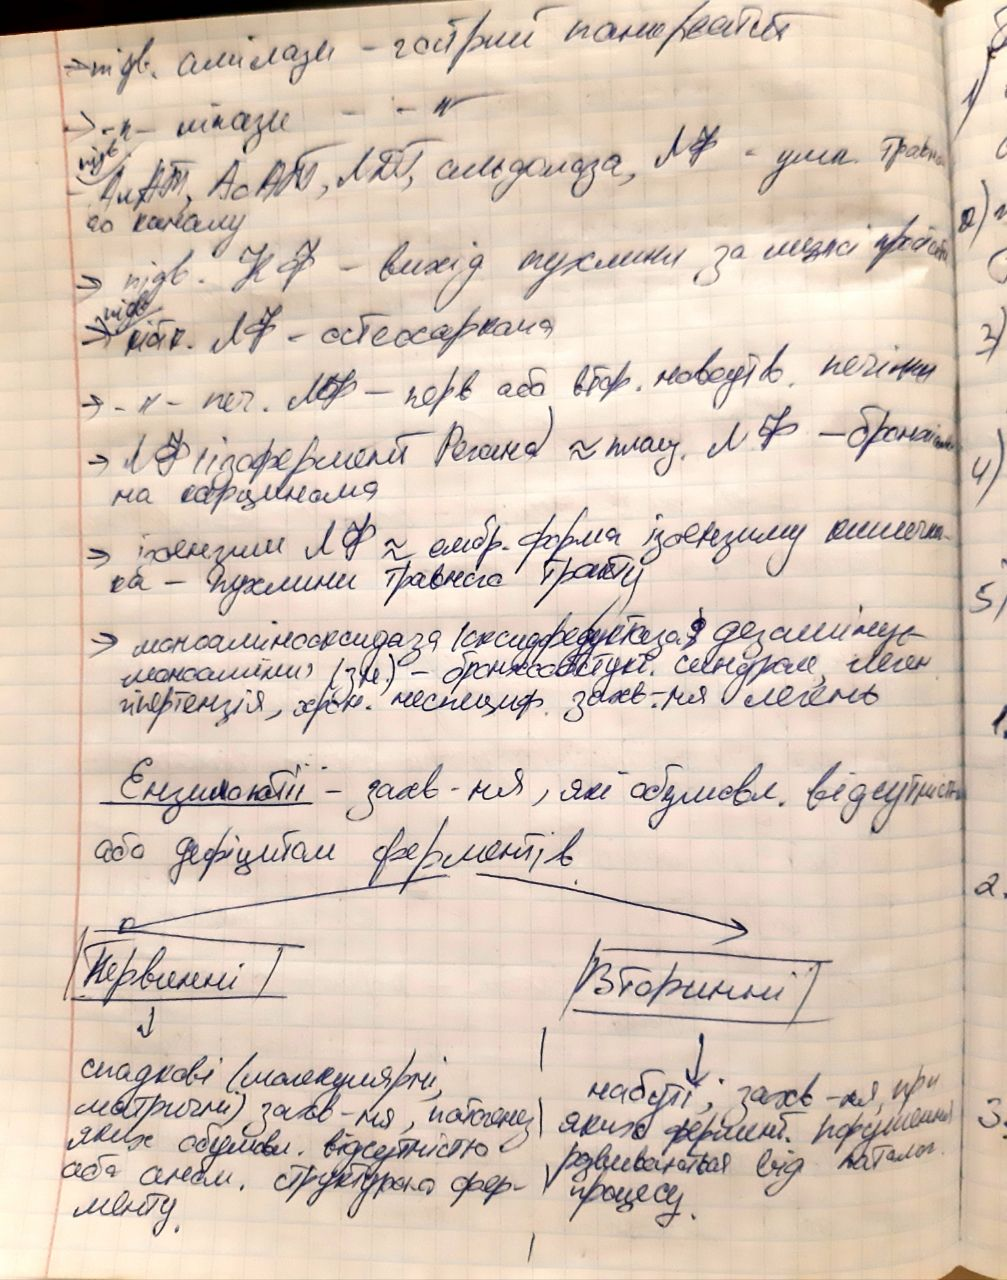 → підв. амілази – гострий панкреатит
→ -"- ліпази - - "-
підв.
АлАТ, АсАТ, ЛДГ, альдолаза, ЛФ -
го каналу
→ підв. КФ – вихід пухлини за межі простати
підв.
→ кістк. ЛФ – остеосаркома
→ -"- печ. ЛФ – перв або втор. новоутв. печінки
→ ЛФ (ізофермент Регана) ≈ плац. ЛФ – бронхіаль
на карцинома
→ ізоензим ЛФ ≈ ембр. форма ізоензиму кишечни-
ка – пухлини травного тракту
→ моноаміноксидаза (оксидоредуктаза, дезамінує
моноаміни) (зн.) – синдром, леген
гіпертензія, хрон. неспециф. захв-ня легень
Ензимопатії – захв-ня, які обумовл. відсутністю
або дефіцитом ферментів.
Первинні
Вторинні
↓
↓
спадкові (молекулярні,
матричні) захв-ня, патогенез
яких обумовл. відсутністю
або аном. структурою фер-
менту.
набуті; захв-ня, при
яких фермент. порушення
розвиваються від патолог.
процесу.
1)
2)
3)
4)
5)
1.
2.
3.